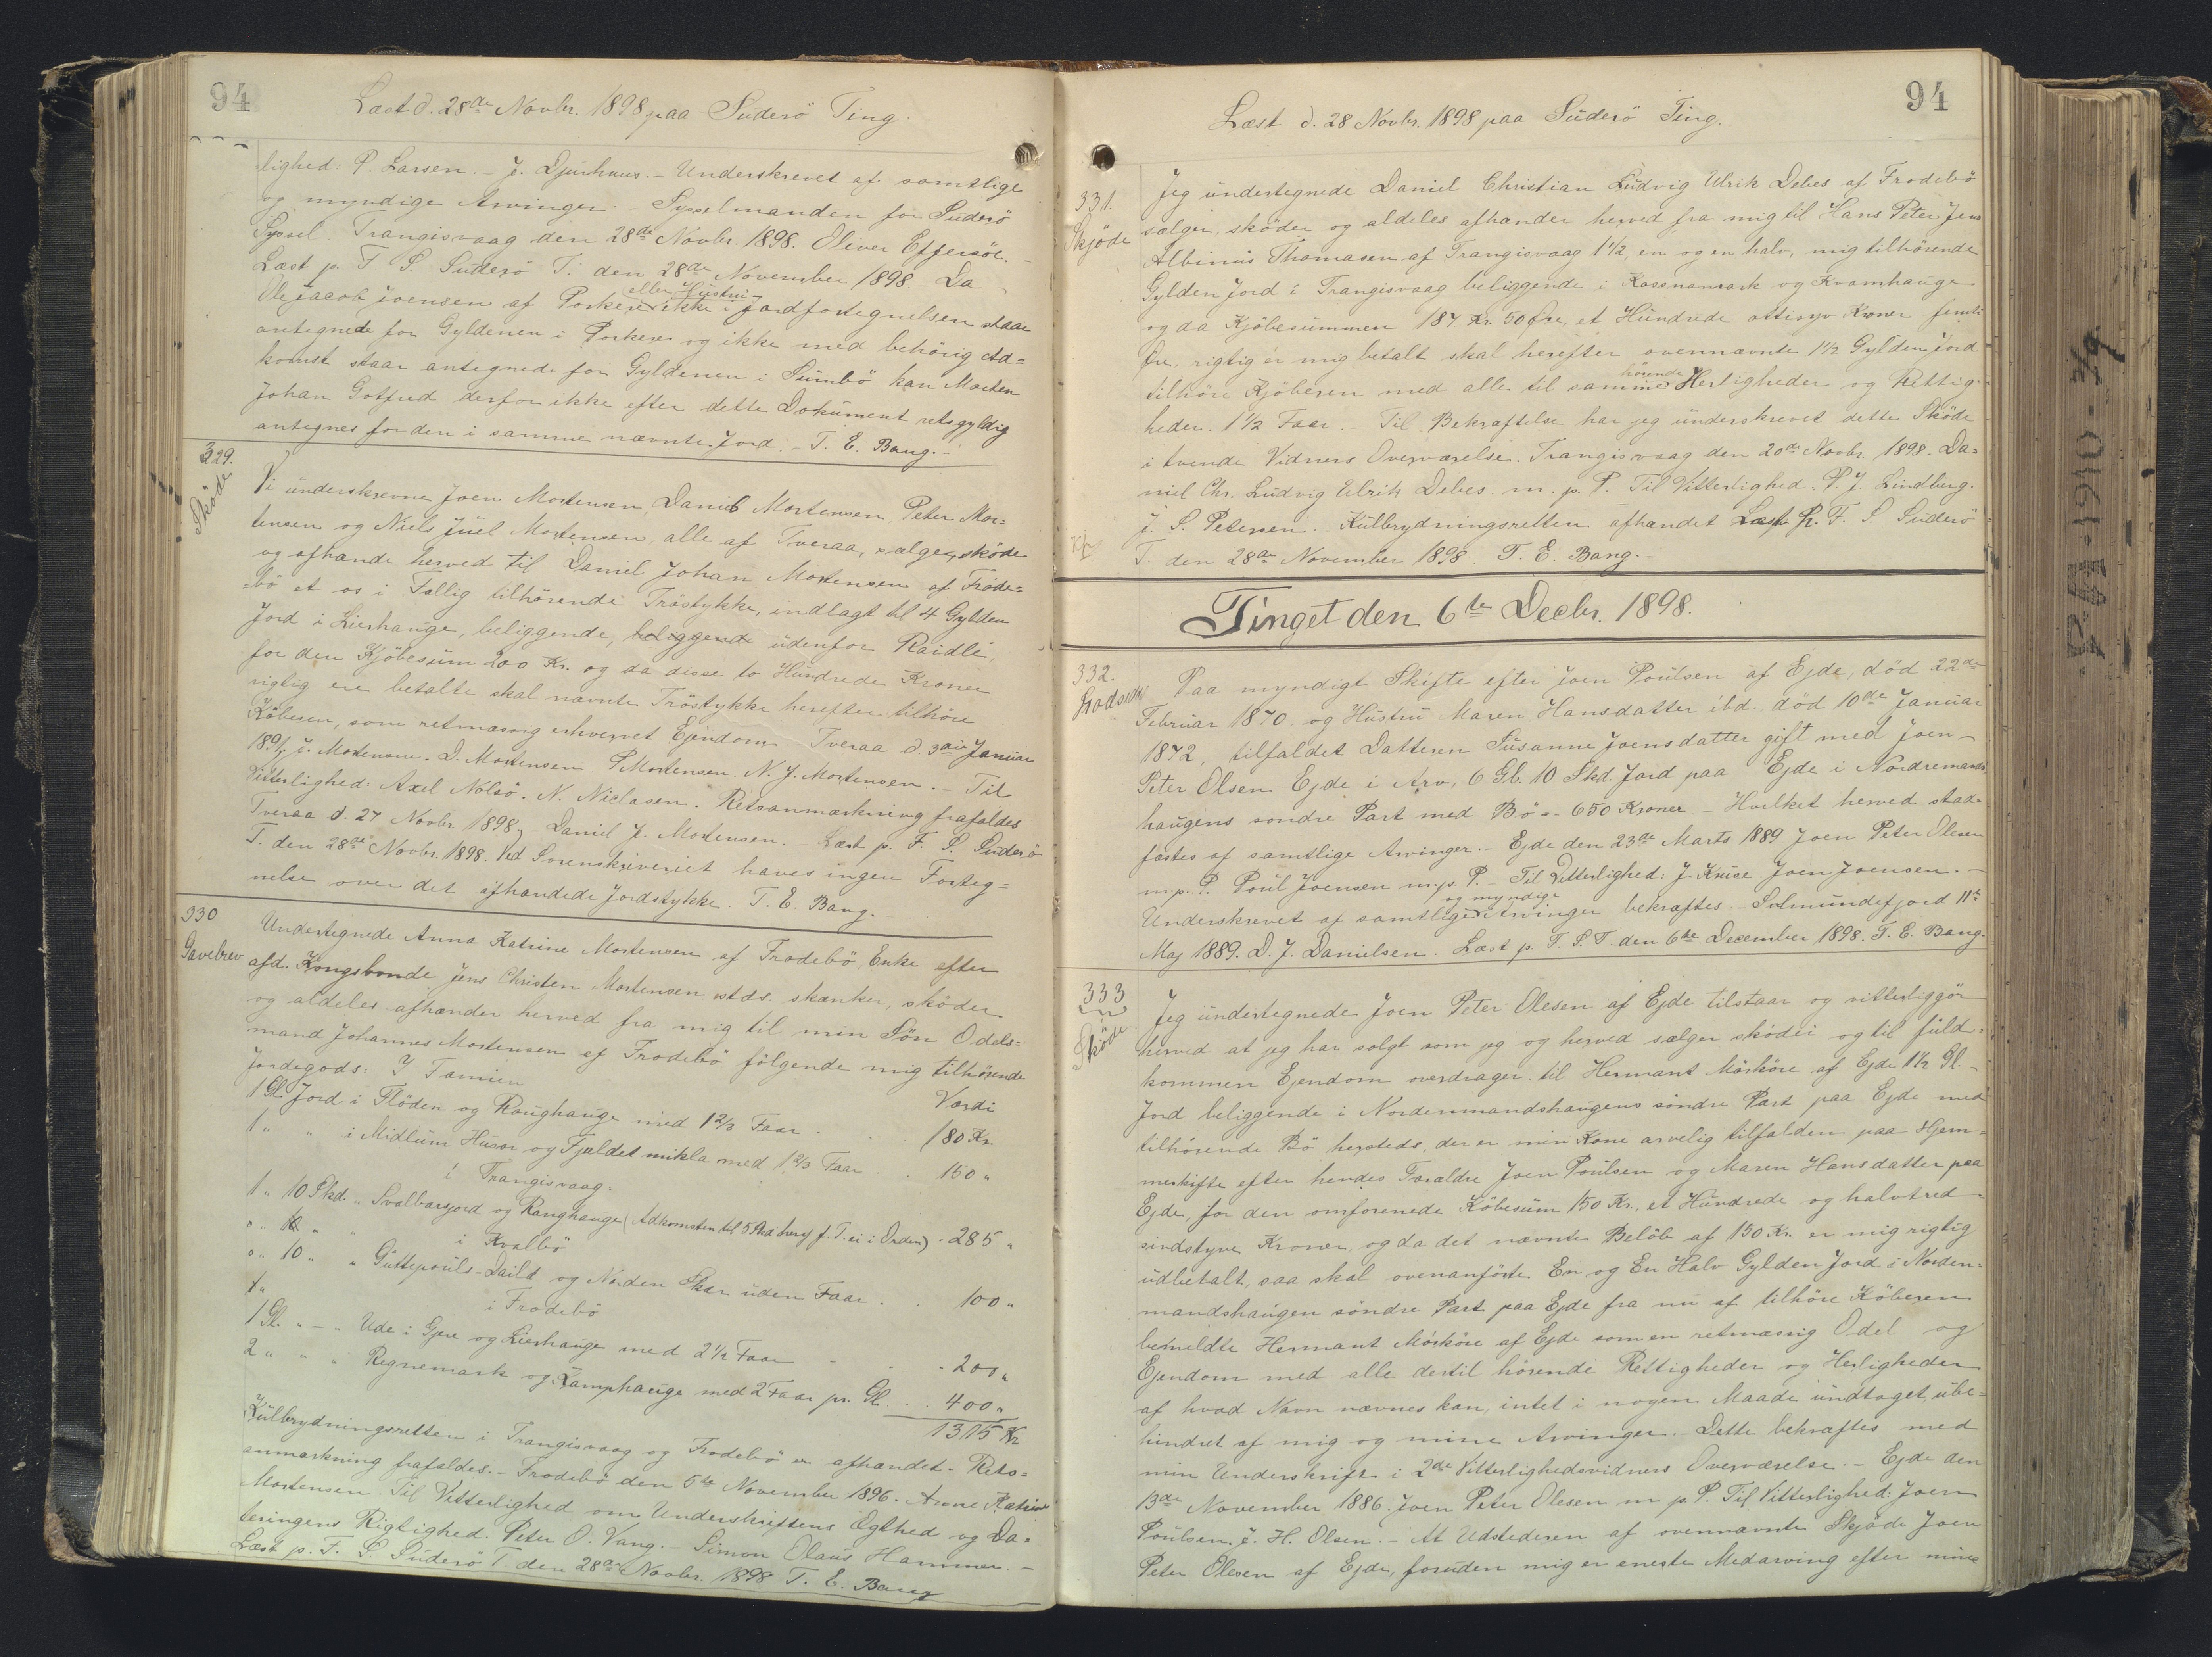 94
Læst d. 28de Novbr. 1898 paa Suderö Ting.
lighed: P. Larsen. - J. Djurhuus. - Underskrevet af samtlige
og myndige Arvinger. - Sysselmanden for Suderö
Syssel. Trangisvaag den 28de Novbr. 1898. Oliver Effersöe. -
Læst p. F. S. Suderö T. den 28de November 1898. Da
eller Hustru
Ole Jacob Joensen af Porkere ikke i Jordfortegnelsen staar
antegnede for Gyldenen i Porkere og ikke med behörig Ad=
komst staar antegnede for Gyldenen i Sumbö kan Morten
Johan Gotfred derfor ikke efter dette Dokument retsgyldig
antegnes for den i samme nævnte Jord. - T. E. Bang. -
329.
Sköde
Vi underskrevne Joen Mortensen, Daniel Mortensen, Peter Mor=
tensen og Niels Juel Mortensen, alle af Tveraa, sælger, sköde
og afhænde herved til Daniel Johan Mortensen af Frode=
bö et os i Fællig tilhörende Tröstykke, indlagt til 4 Gylden
Jord i Lierhauge, beliggende, beliggende udenfor Raidli,
for den Kjöbesum 200 Kr. og da disse to Hundrede Kroner
rigtig ere betalte skal nævnte Tröstykke herefter tilhöre
Köberen, som retmæssig erhvervet Ejendom. Tveraa d. 3die Januar
1897. J. Mortensen. D. Mortensen. P. Mortensen. N. J. Mortensen. - Til
Vitterlighed: Axel Nolsö. N. Niclasen. Retsanmærkning frafaldes
Tveraa d. 27 Novbr. 1898. - Daniel J. Mortensen. Læst p. F. S. Suderö
T. den 28de Novbr. 1898. Ved Sorenskriveriet haves ingen Forteg=
nelse over det afhændede Jordstykke. T. E. Bang.
330
Gavebrev
Undertegnede Anna Katrine Mortensen af Frodebö, Enke efter
afd. Kongsbonde Jens Christen Mortensen istds. skænker, sköder
og aldeles afhænder herved fra mig til min Sön Odels=
mand Johannes Mortensen af Frodebö fölgende mig tilhörende
Jordegods: I Famien
Værdi
1 Gl. Jord i Flöden og Raughauge med 1 2/3 Faar . 180 Kr.
1 " " i Midlum Husar og Fjeldet mikla med 1 2/3 Faar . 150 "
i Trangisvaag.
1 " 10 Skd. " Svalbarsjord og Ranghauge (Adkomsten til 5 Skd heraf f. T. ei i Orden) . 285 "
i Kvalbö
" " 10 " " Guttepouls-Daild og Norden Skar uden Faar . . 100 "
i Frodebö
1 Gl. " - " Ude i Gjere og Lierhauge med 2 1/2 Faar . . 200 "
2 " " " Regnemark og Kamphauge med 2 Faar pr. Gl. . . 400 "
1315 Kr
Kulbrydningsretten i Trangisvaag og Frodebö er afhændet. Rets=
anmærkning frafaldes. - Frodebö den 5te November 1896. Anne Katrine
Mortensen. Til Vitterlighed om Underskriftens Ægthed og Da=
teringens Rigtighed: Peter O. Vang. - Simon Olaus Hammer. -
Læst p. F. S. Suderö T. den 28de Novbr. 1898 T. E. Bang
94
Læst d. 28 Novbr. 1898 paa Suderö Ting.
331.
Skjöde
Jeg undertegnede Daniel Christian Ludvig Ulrik Debes af Frodebö
sælger, sköder og aldeles afhænder herved fra mig til Hans Peter Jens
Albinus Thomasen af Trangisvaag 1 1/2, en og en halv, mig tilhörende
Gylden Jord i Trangisvaag beliggende i Kossnamark og Kvamhauge
og da Kjöbesummen 187 Kr. 50 Öre, et Hundrede ottisyv Kroner femti
Öre, rigtig er mig betalt skal herefter ovennævnte 1 1/2 Gylden Jord
hörende
tilhöre Kjöberen med alle til samme Herligheder og Rettig=
heder. 1 1/2 Faar. - Til Bekræftelse har jeg underskrevet dette Sköde
i tvende Vidners Overværelse. Trangisvaag den 20de Novbr. 1898. Da=
niel Chr. Ludvig Ulrik Debes. m. p. P. Til Vitterlighed: P. J. Lindberg.
J. S. Petersen. Kulbrydningsretten afhændet Læst p. F. S. Suderö
T. den 28de November 1898. T. E. Bang. -
Tinget den 6te Decbr. 1898.
332.
Paa myndigt Skifte efter Joen Poulsen af Ejde, död 22de
Februar 1870 og Hustru Maren Hansdatter ibd. död 10de Januar
1872, tilfaldet Datteren Susanne Joensdatter gift med Joen
Peter Olsen Ejde i Arv, 6 Gl. 10 Skd. Jord paa Ejde i Nordremands
haugens söndre Part med Bö = 650 Kroner - Hvilket herved stad=
fæstes af samtlige Arvinger. - Ejde den 23de Marts 1889 Joen Peter Olesen
m. p. P. Poul Joensen m. p. P. - Til Vitterlighed: J. Kruse. Joen Joensen. -
og myndige
Underskrevet af samtlige Arvinger bekræftes - Solmundefjord 11te
Maj 1889. D. J. Danielsen. Læst p. F. S. T. den 6te December 1898. T. E. Bang.
333
Sköde
Jeg undertegnede Joen Peter Olesen af Ejde tilstaar og vitterliggör
herved at jeg har solgt som jeg og herved sælger sköder og til fuld=
kommen Ejendom overdrager til Hermant Mörköre af Ejde 1 1/2 Gl.
Jord beliggende i Nordenmandshaugens söndre Part paa Ejde med
tilhörende Bö hersteds, der er min Kone arvelig tilfalden paa Hjem=
meskifte efter hendes Forældre Joen Poulsen og Maren Hansdatter paa
Ejde, for den omforenede Köbesum 150 Kr., et Hundrede og halvtred=
sindstyve Kroner, og da det nævnte Belöb af 150 Kr. er mig rigtig
udbetalt, saa skal ovenanförte En og En Halv Gylden Jord i Norden=
mandshaugen söndre Part paa Ejde fra nu af tilhöre Köberen
bemeldte Hermant Mörköre af Ejde som en retmæssig Odel og
Ejendom med alle dertil hörende Rettigheder og Herligheder
af hvad Navn nævnes kan, intet i nogen Maade undtaget, ube=
hindret af mig og mine Arvinger. - Dette bekræftes med
min Underskrift i 2de Vitterlighedsvidners Overværelse. - Ejde den
13de November 1886. Joen Peter Olesen m. p. P. Til Vitterlighed: Joen
Poulsen. J. H. Olsen. - At Udstederen af ovennævnte Skjöde Joen
Peter Olesen af Ejde, foruden mig er eneste Medarving efter mine